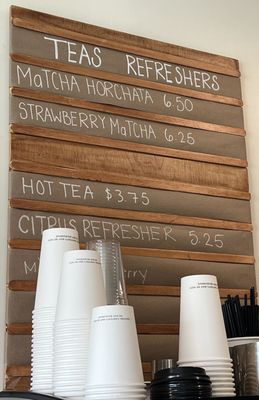 TEAS REFRESHERS
MaTCHA HORCHATA 6.50
STRAWBERRY MaTCHA 6.25
HOT TEA $3.75
CITRUS REFRESHER 5.25